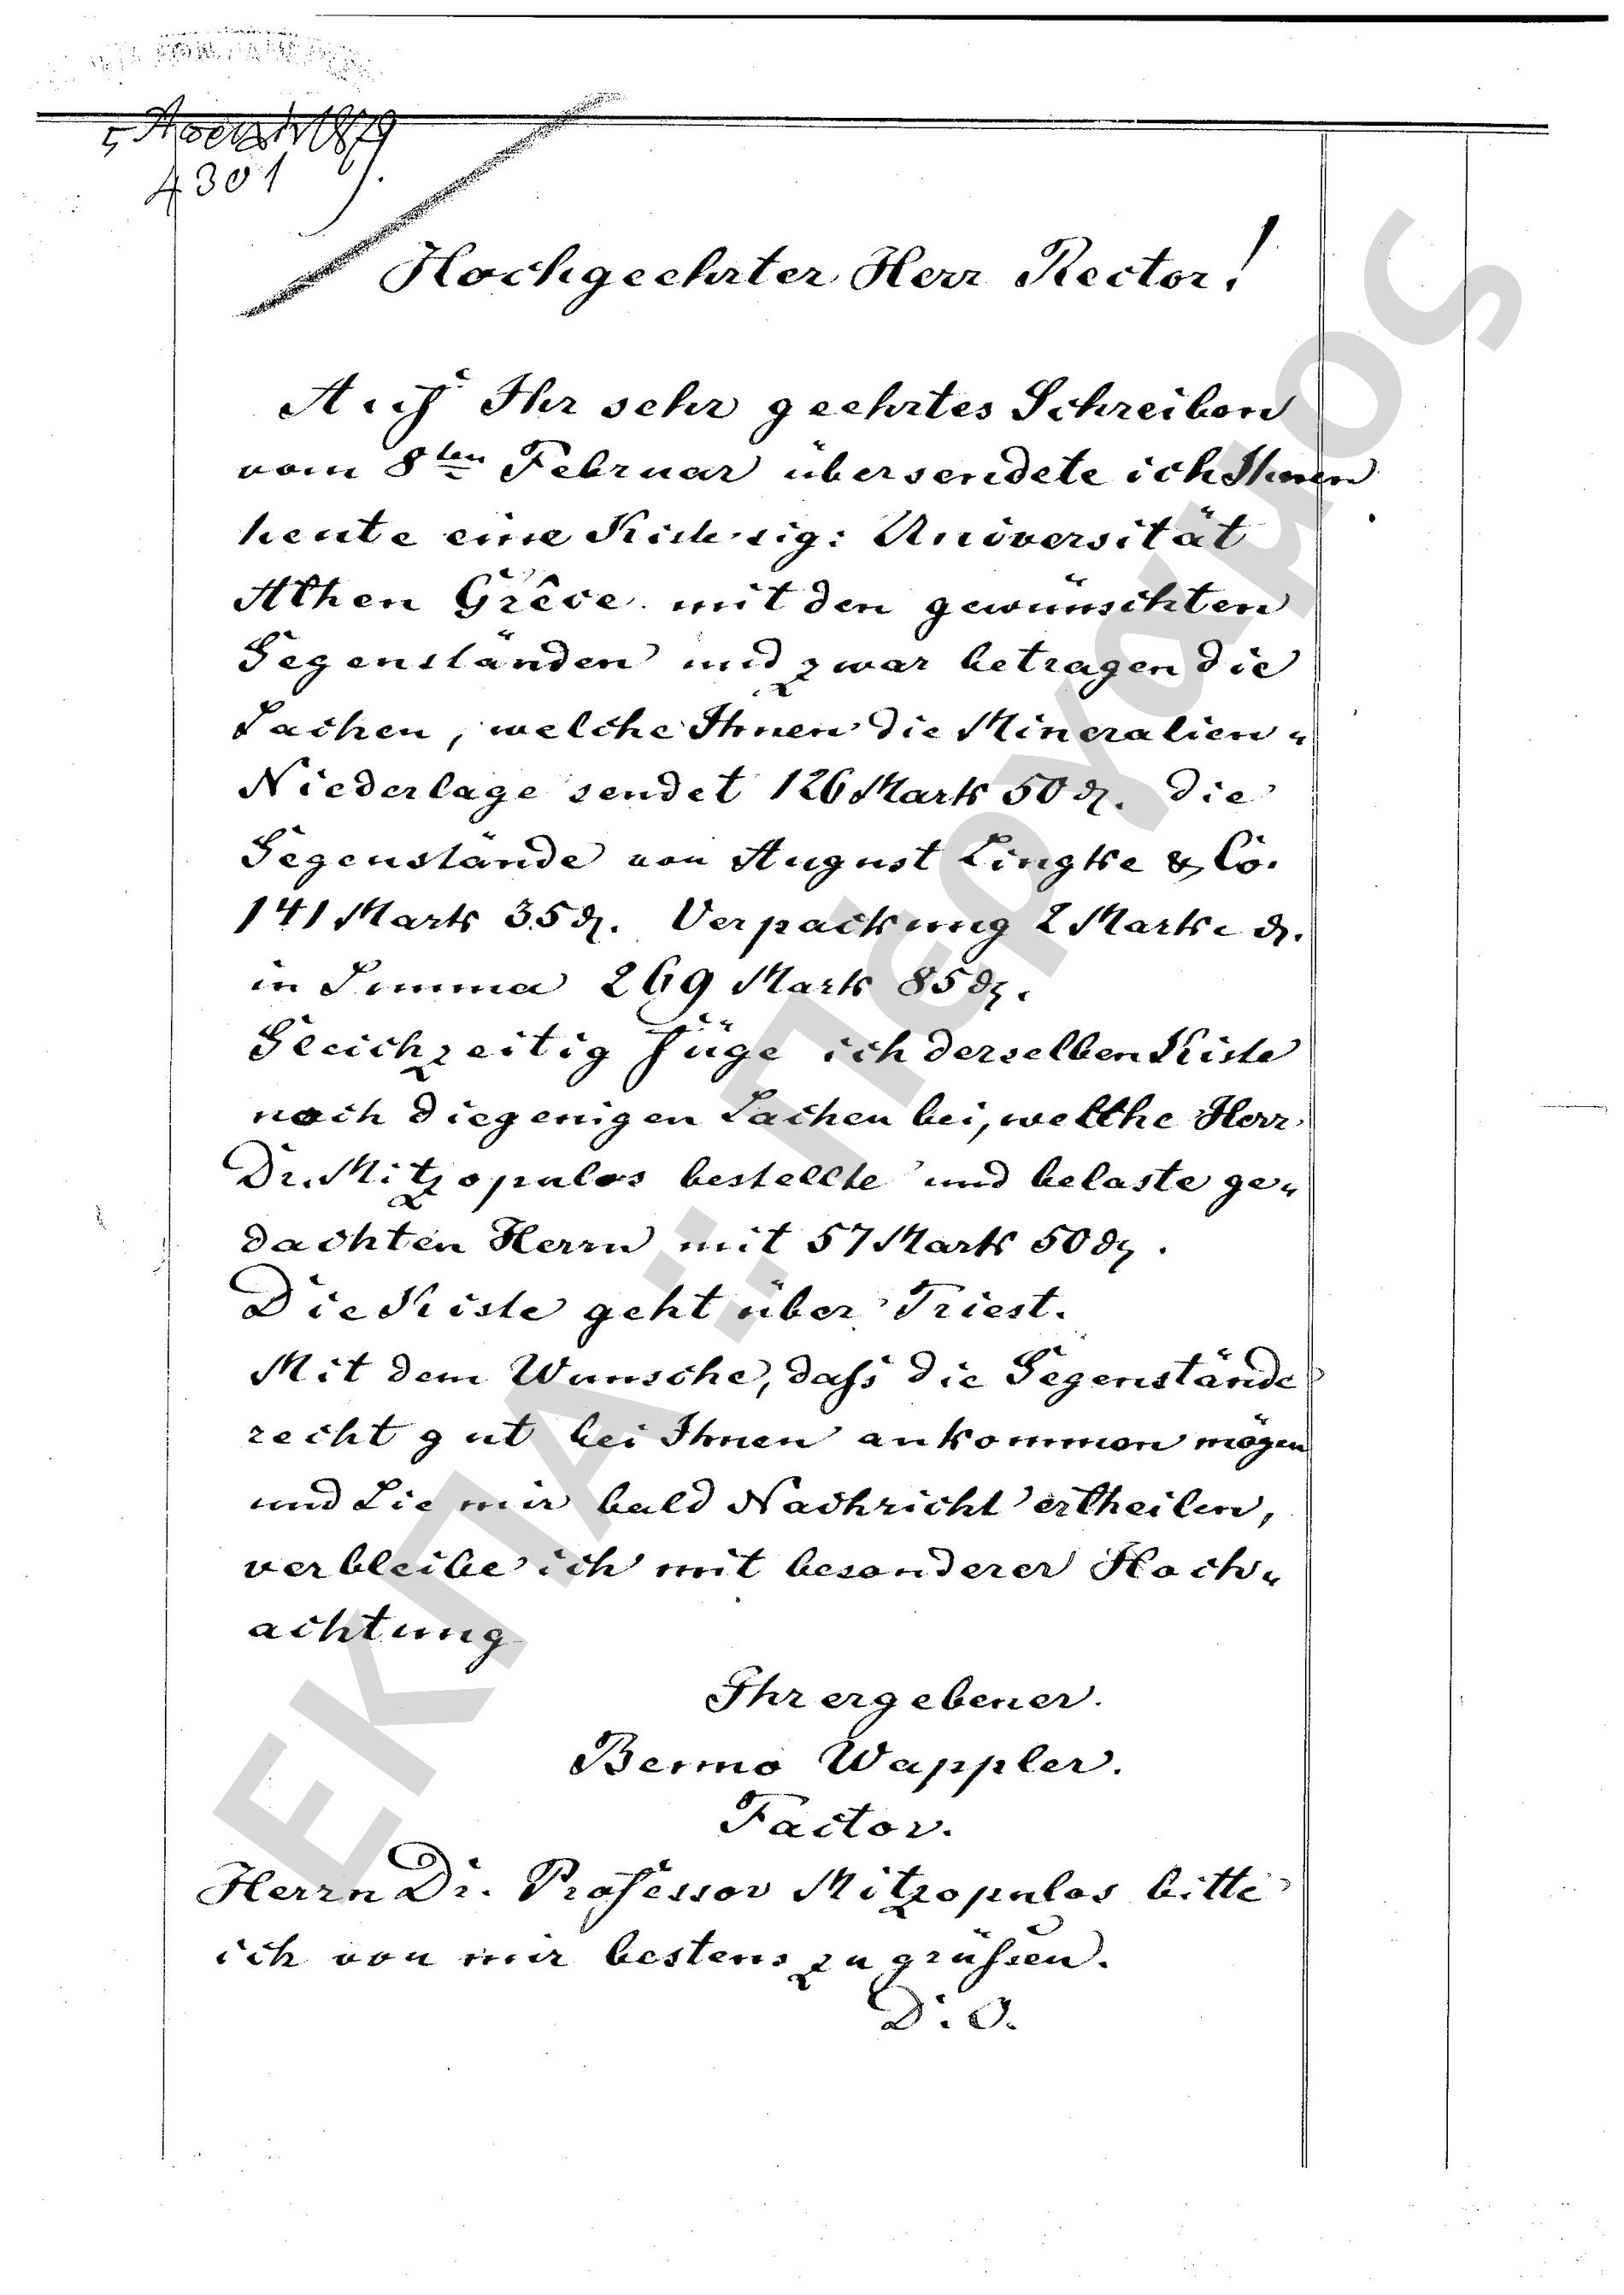 5 1879
4301
Hochgeehrter Herr Rector!
Auf Ihr sehr geehrtes Schreiben
vom 8ten Februar übersendete ich Ihnen
heute eine Kiste sig: Universität
Athen Grêce mit den gewünschten
Gegenständen und zwar betragen die
Sachen, welche Ihnen die Mineralien-
Niederlage sendet 126 Mark 50 ₰. die
Gegenstände von August Lingke & Co.
141 Mark 35 ₰. Verpackung 2 Mark - ₰.
in Summa 269 Mark 85 ₰.
Gleichzeitig füge ich derselben Kiste
noch diegenigen Sachen bei, welche Herr
Dr. Mitzopulos bestellte und belaste ge-
dachten Herrn mit 57 Mark 50 ₰.
Die Kiste geht über Triest.
Mit dem Wunsche, daß die Gegenstände
recht gut bei Ihnen ankommen mögen
und Sie mir bald Nachricht ertheilen,
verbleibe ich mit besonderer Hoch-
achtung
Ihr ergebener
Benno Wappler.
Factor.
Herrn Dr. Professor Mitzopulos bitte
ich von mir bestens zu grüßen.
D. O.
ΕΚΠΑ: Πέργαμος